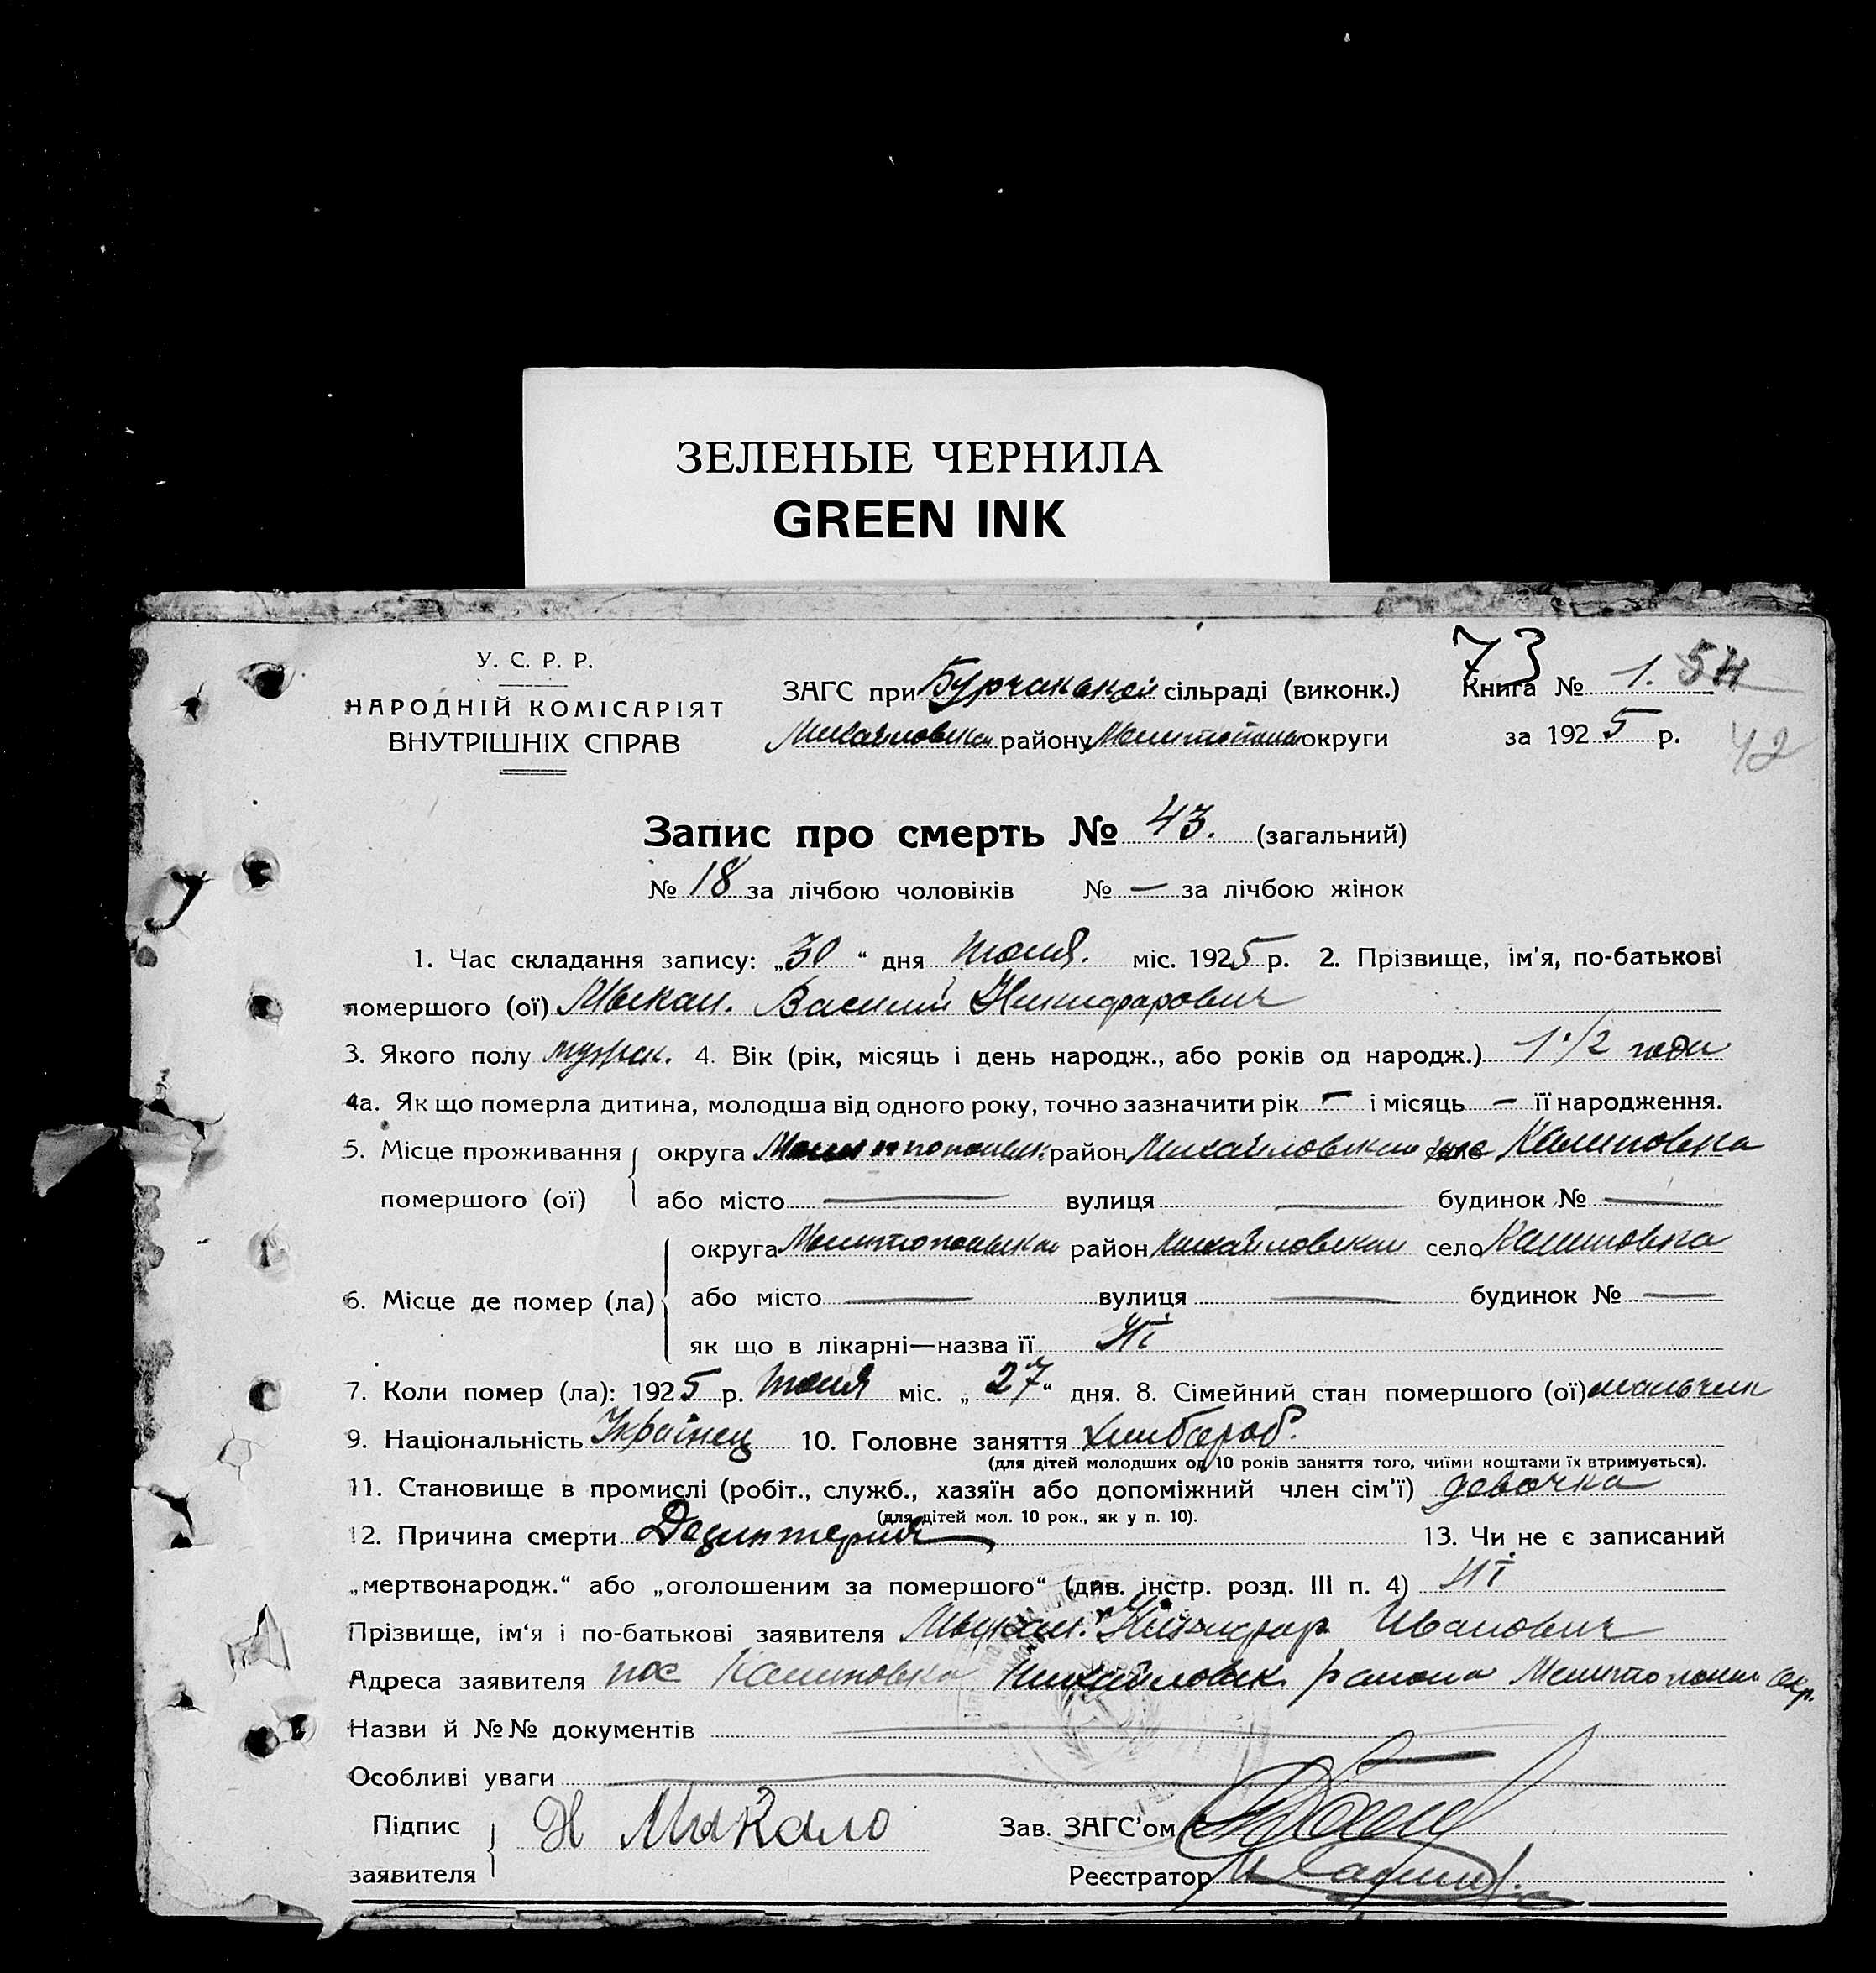 ЗЕЛЕНЫЕ ЧЕРНИЛА
GREEN INK
73
У. С. Р. Р.
НАРОДНІЙ КОМІСАРІЯТ
ВНУТРІШНІХ СПРАВ
ЗАГС при Бурчанской сільраді (виконк.)
Книга № 1. 54
району округи
за 1925 р.
42
Запис про смерть № 43. (загальний)
№ 18 за лічбою чоловіків № — за лічбою жінок
1. Час складання запису: „30“ дня міс. 1925 р. 2. Прізвище, ім’я, по-батькові
помершого (ої) Василий
3. Якого полу мужск. 4. Вік (рік, місяць і день народж., або років од народж.) 1 1/2 года
4а. Як що померла дитина, молодша від одного року, точно зазначити рік — і місяць — її народження.
5. Місце проживання округа район село Калиновка
помершого (ої) або місто — вулиця — будинок № —
округа район село Калиновка
6. Місце де помер (ла) або місто — вулиця — будинок № —
як що в лікарні—назва її Ні
7. Коли помер (ла): 1925 р. міс. „27“ дня. 8. Сімейний стан помершого (ої) мальчик
9. Національність Українец 10. Головне заняття хлибороб.
(для дітей молодших од 10 років заняття того, чиїми коштами їх втримується).
11. Становище в промислі (робіт., служб., хазяїн або допоміжний член сім’ї) девочка
(для дітей мол. 10 рок., як у п. 10).
12. Причина смерти 13. Чи не є записаний
„мертвонародж.“ або „оголошеним за помершого“ (див. інстр. розд. III п. 4) Ні
Прізвище, ім‘я і по-батькові заявителя Иванович
Адреса заявителя пос Калиновка Михайловск. района окр.
Назви й №№ документів —
Особливі уваги —
Підпис Н Микало Зав. ЗАГС’ом
заявителя Реєстратор